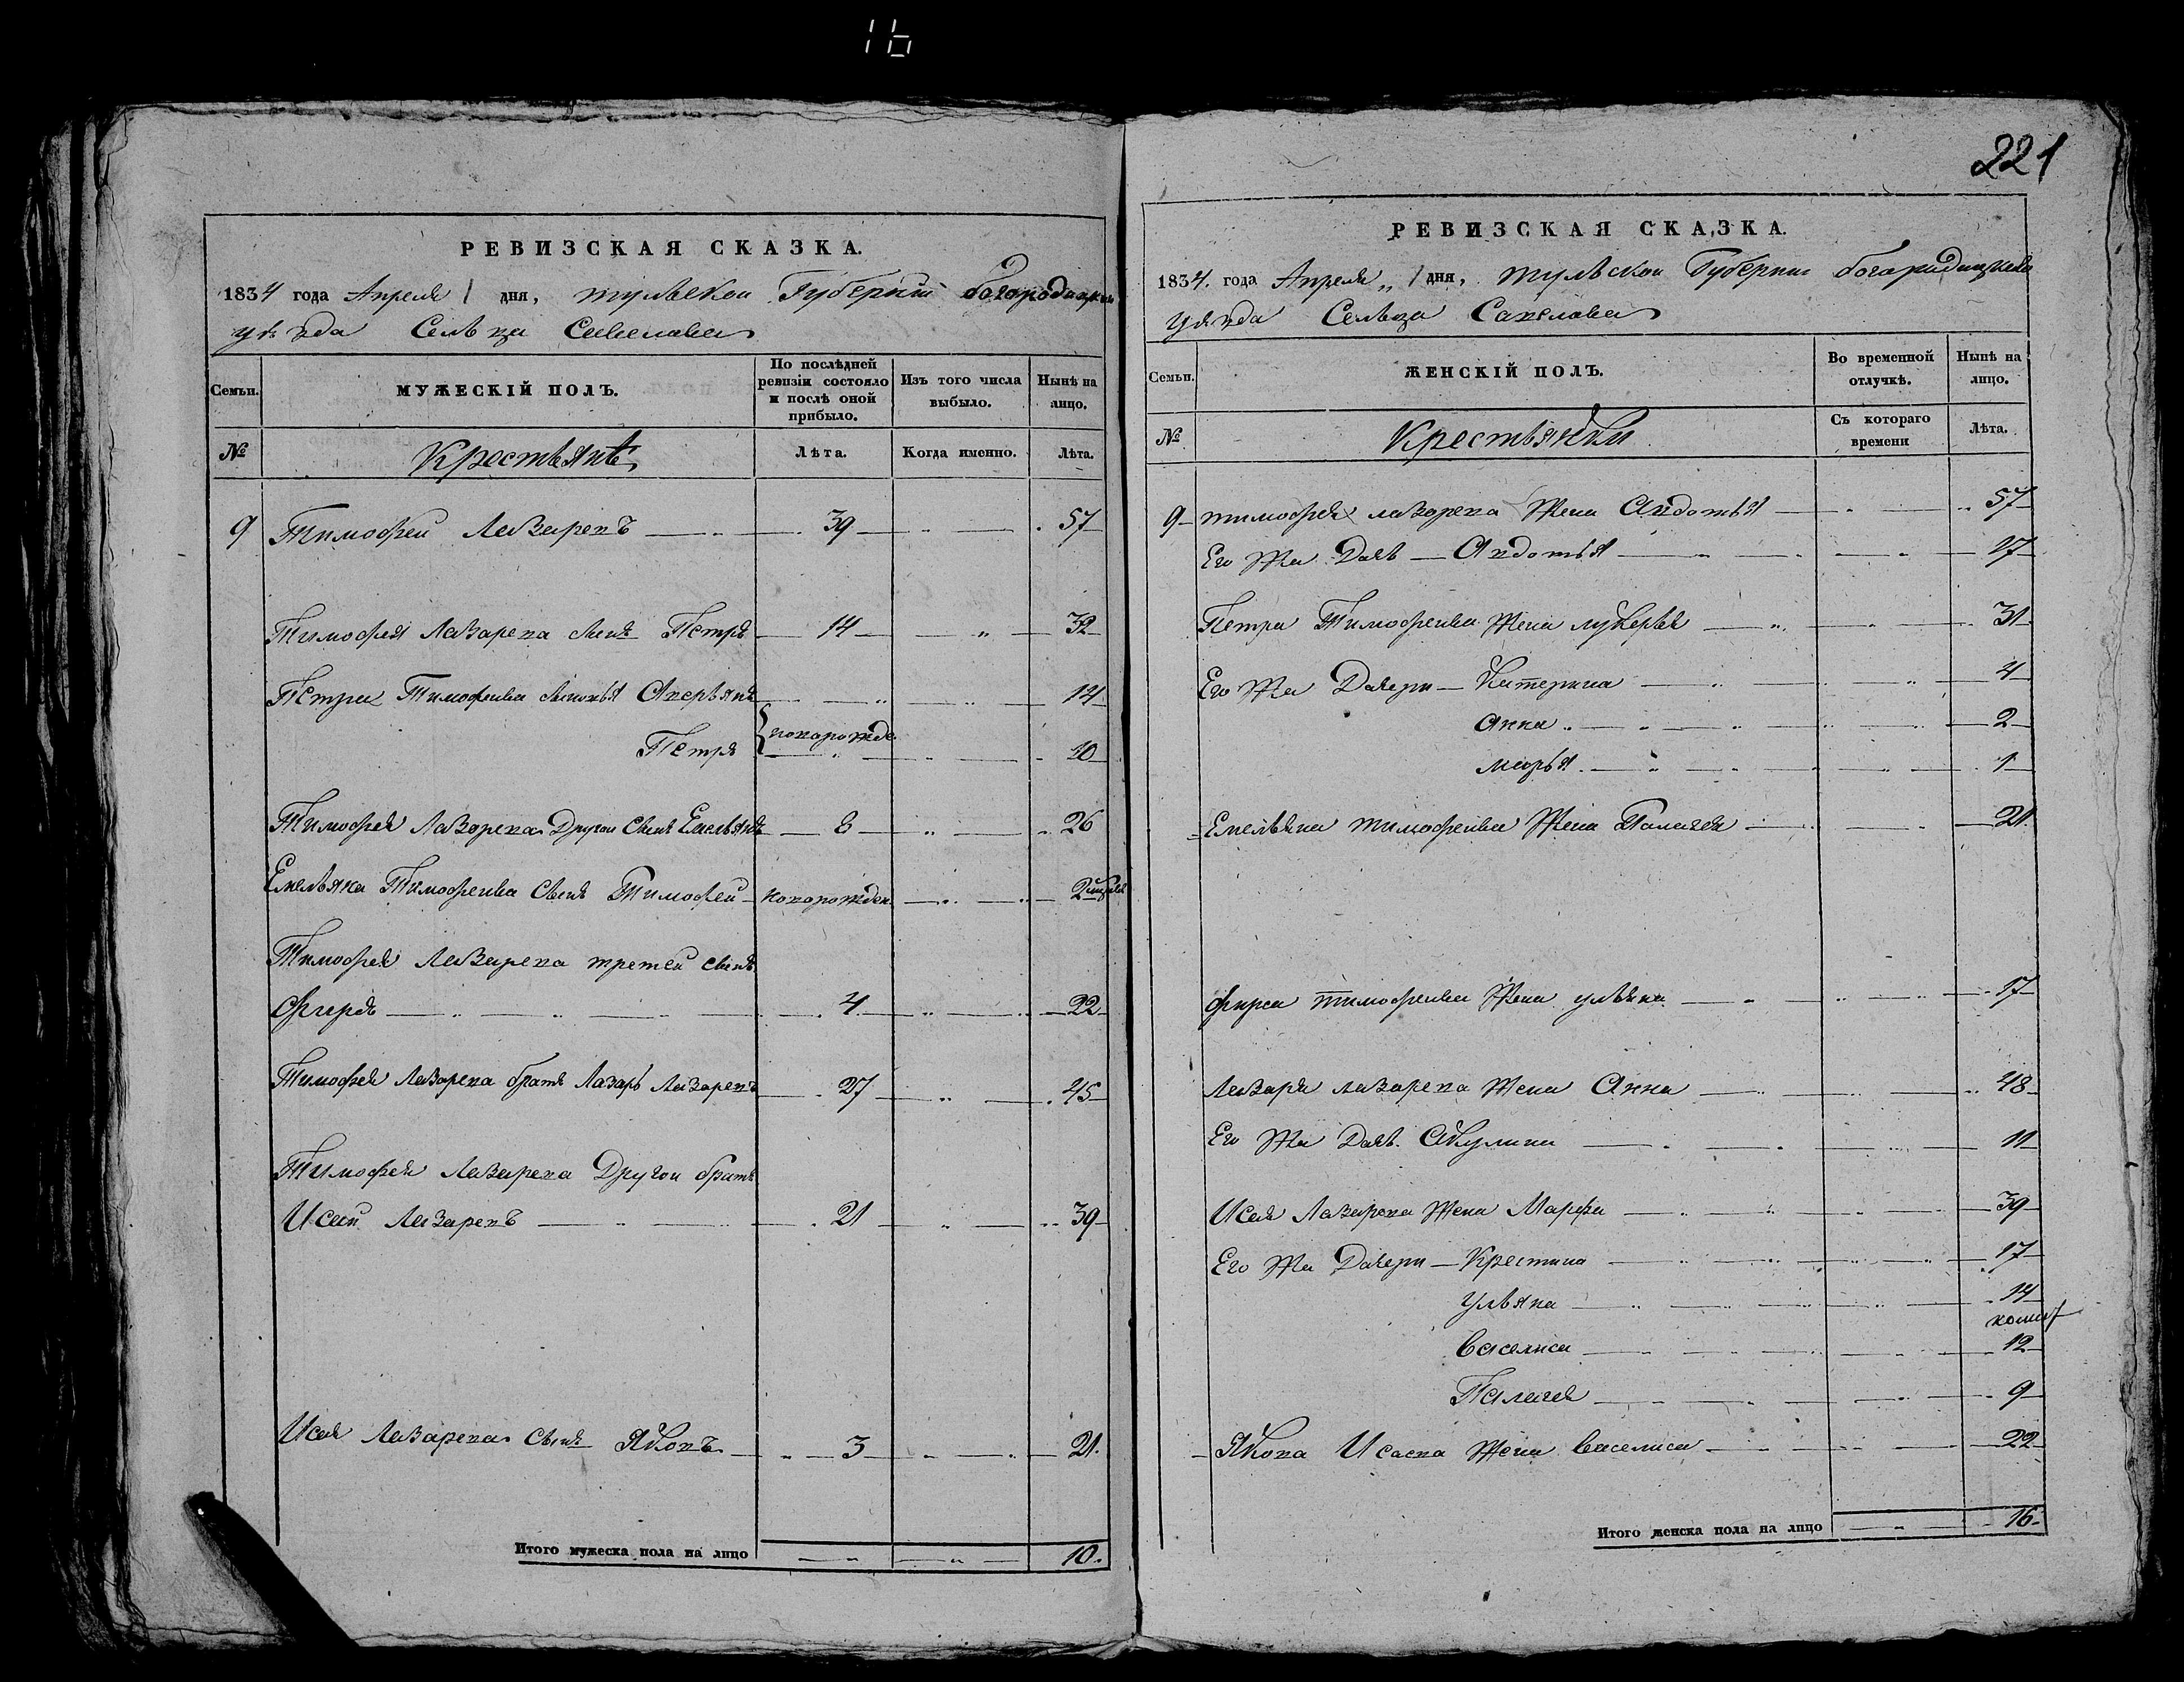 16
221
РЕВИЗСКАЯ СКАЗКА.
1834 года Апреля 1 дня, тульской Губернии богородицкаго
уѣзда Сельца Савелова
Семьи.
МУЖЕСКІЙ ПОЛЪ.
По послѣдней ревизіи состояло и послѣ оной прибыло.
Изъ того числа выбыло.
Нынѣ на лицо.
№
Крестьянѣ
Лѣта.
Когда именно.
Лѣта.
9 Тимофей Лазаревъ 39 57
Тимофея Лазарева сынъ Петръ 14 32
Петра Тимофеива сыновья Аверьянъ 14
новорожде.
Петръ 10
Тимофея Лазарева Другои сынъ Емельянъ 8 26
Емельяна Тимофеива сынъ Тимофей новорожден. 2
Тимофея Лазарева третей сынъ
Фирсъ 4 22
Тимофея Лазарева братъ Лазарь Лазаревъ 27 45
Тимофея Лазарева Другои братъ
Исай Лазаревъ 21 39
Исая Лазарева сынъ Яковъ 3 21.
Итого мужеска пола на лицо 10.
РЕВИЗСКАЯ СКАЗКА.
1834. года Апреля 1 дня, тульскои Губернии богородицкаго
уѣзда Сельца Савелова
Семьи.
ЖЕНСКІЙ ПОЛЪ.
Во временной отлучкѣ.
Нынѣ на лицо.
№
Крестьянки
Съ котораго времени
Лѣта.
9 тимофея лазарева Жена Авдотья 57
Его Жа Дочь Авдотья 17
Петра Тимофеива Жена лукерья 31
Его Жа Дочери Катерина 4
Анна 2
марья 1
Емельяна тимофеива Жена Палагея 21.
фирса тимофеива Жена ульяна 17
Лазаря лазарева Жена Анна 48
Его Жа Дочь. Акулина 11
Исая Лазарева Жена Марфа 39
Его Жа Дочери Крестина 17
Ульяна 14
василиса 12
Палагея 9
Якова Исаева Жена василиса 22
Итого женска пола на лицо 16.